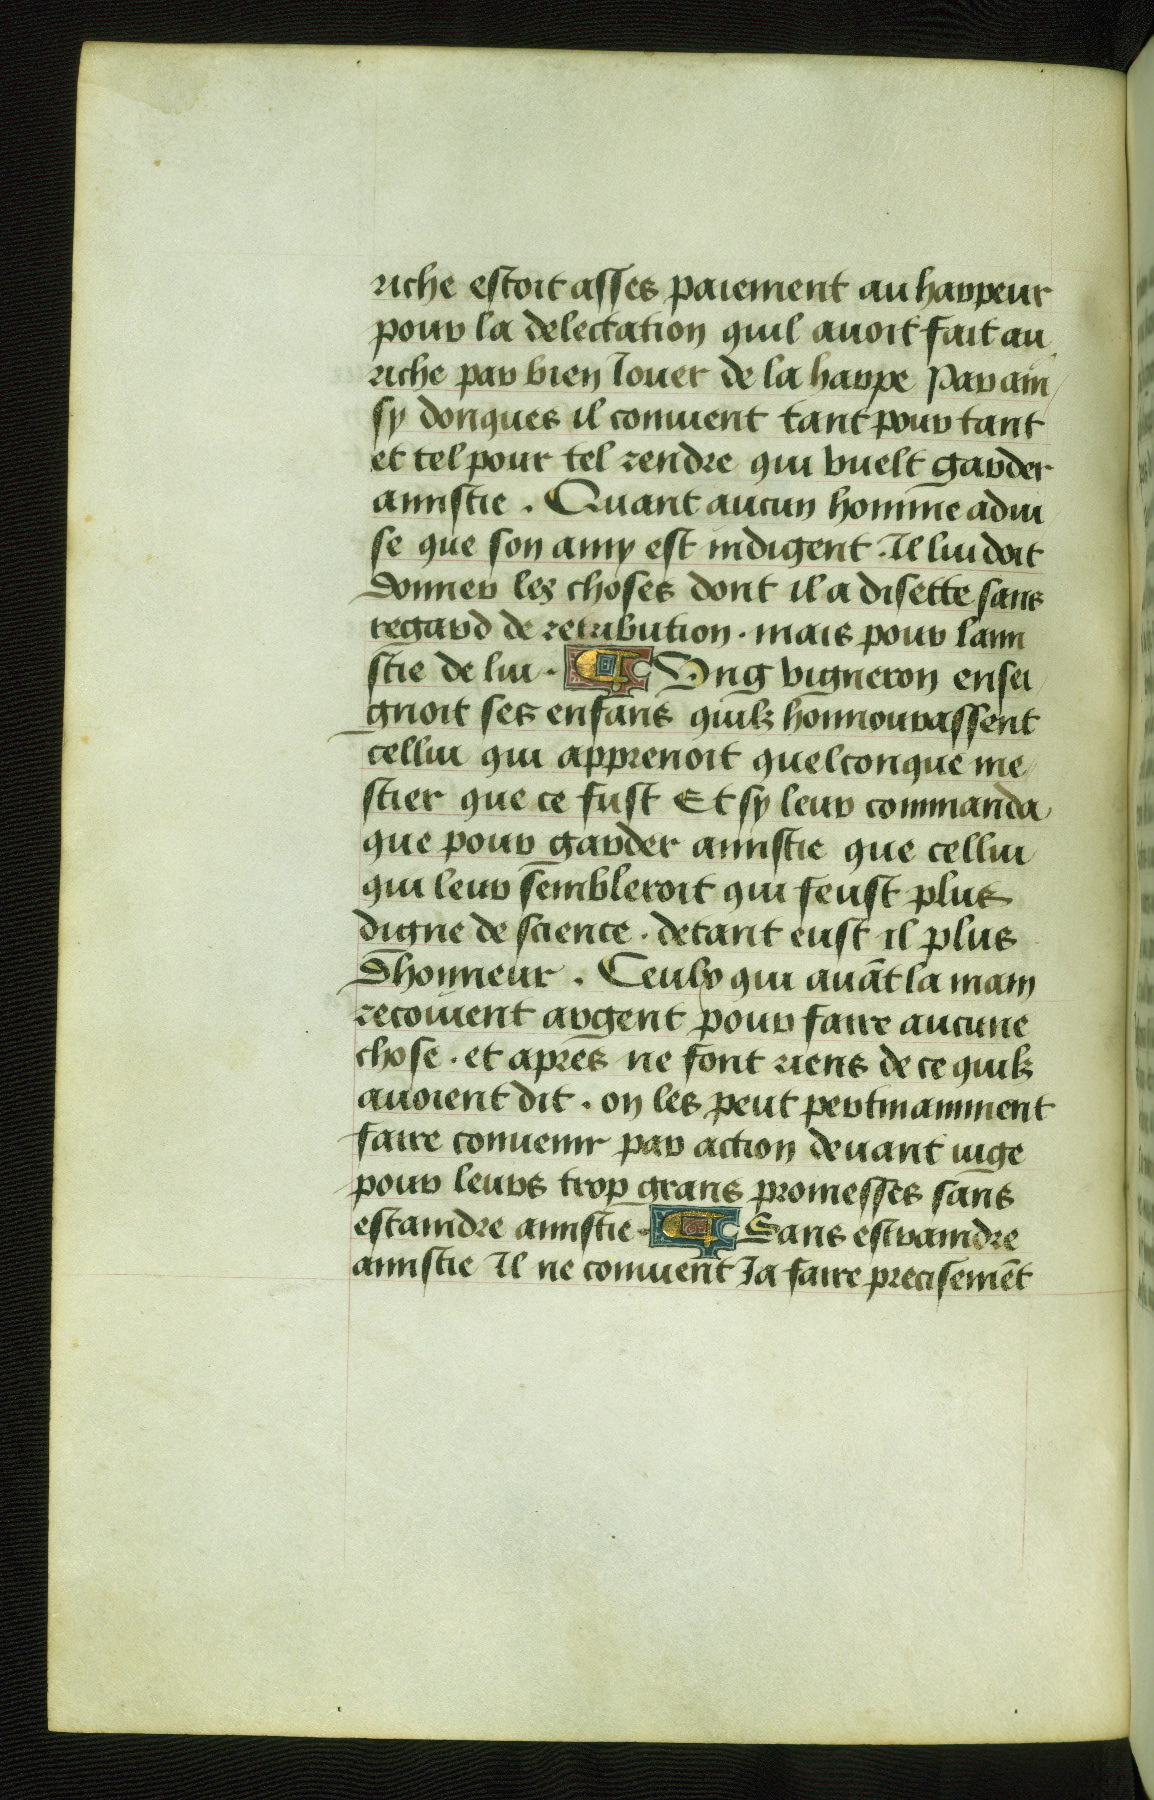 riche estoit asses paiement au harpeur
pour la delectation quil auoit fait au
riche par bien Jouer de la harpe Par ain
sy donques il conuient tant pour tant
et tel pour tel rendre qui vuelt garder
amistie . Quant aucun homme adui
se que son amy est indigent . Il lui doit
donner les choses dont il a disette sans
regard de retribution . mais pour lami
stie de lui . ¶ Ung vigneron ensei
gnoit ses enfans quilz honnourassent
cellui qui apprenoit quelconque me
stier que ce fust Et sy leur commanda
que pour garder amistie que cellui
qui leur sembleroit qui feust plus
digne de science . detant eust il plus
dhonneur . Ceulx qui auãt la main
recoiuent argent pour faire aucune
chose . et apres ne font riens de ce quilz
auoient dit . on les peut pertinamment
faire conuenir par action deuant iuge
pour leurs trop grans promesses sans
estaindre amistie . ¶ Sans estraindre
amistie Il ne conuient Ja faire precisemẽt